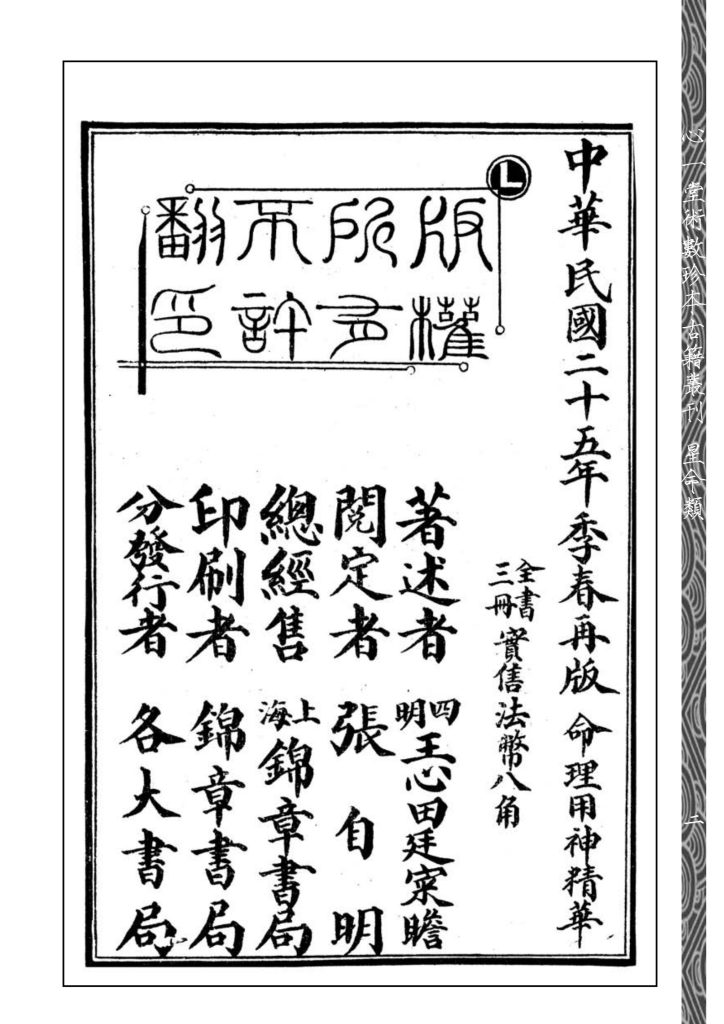 心一堂術數珍本古籍叢刊 星命類
二
中華民國二十五年季春再版 命理用神精華
全書三冊 實售法幣八角
L
版權
所有
不許
翻印
著述者 四明 王心田廷 瞻
閱定者 張自明
總經售 上海 錦章書局
印刷者 錦章書局
分發行者 各大書局